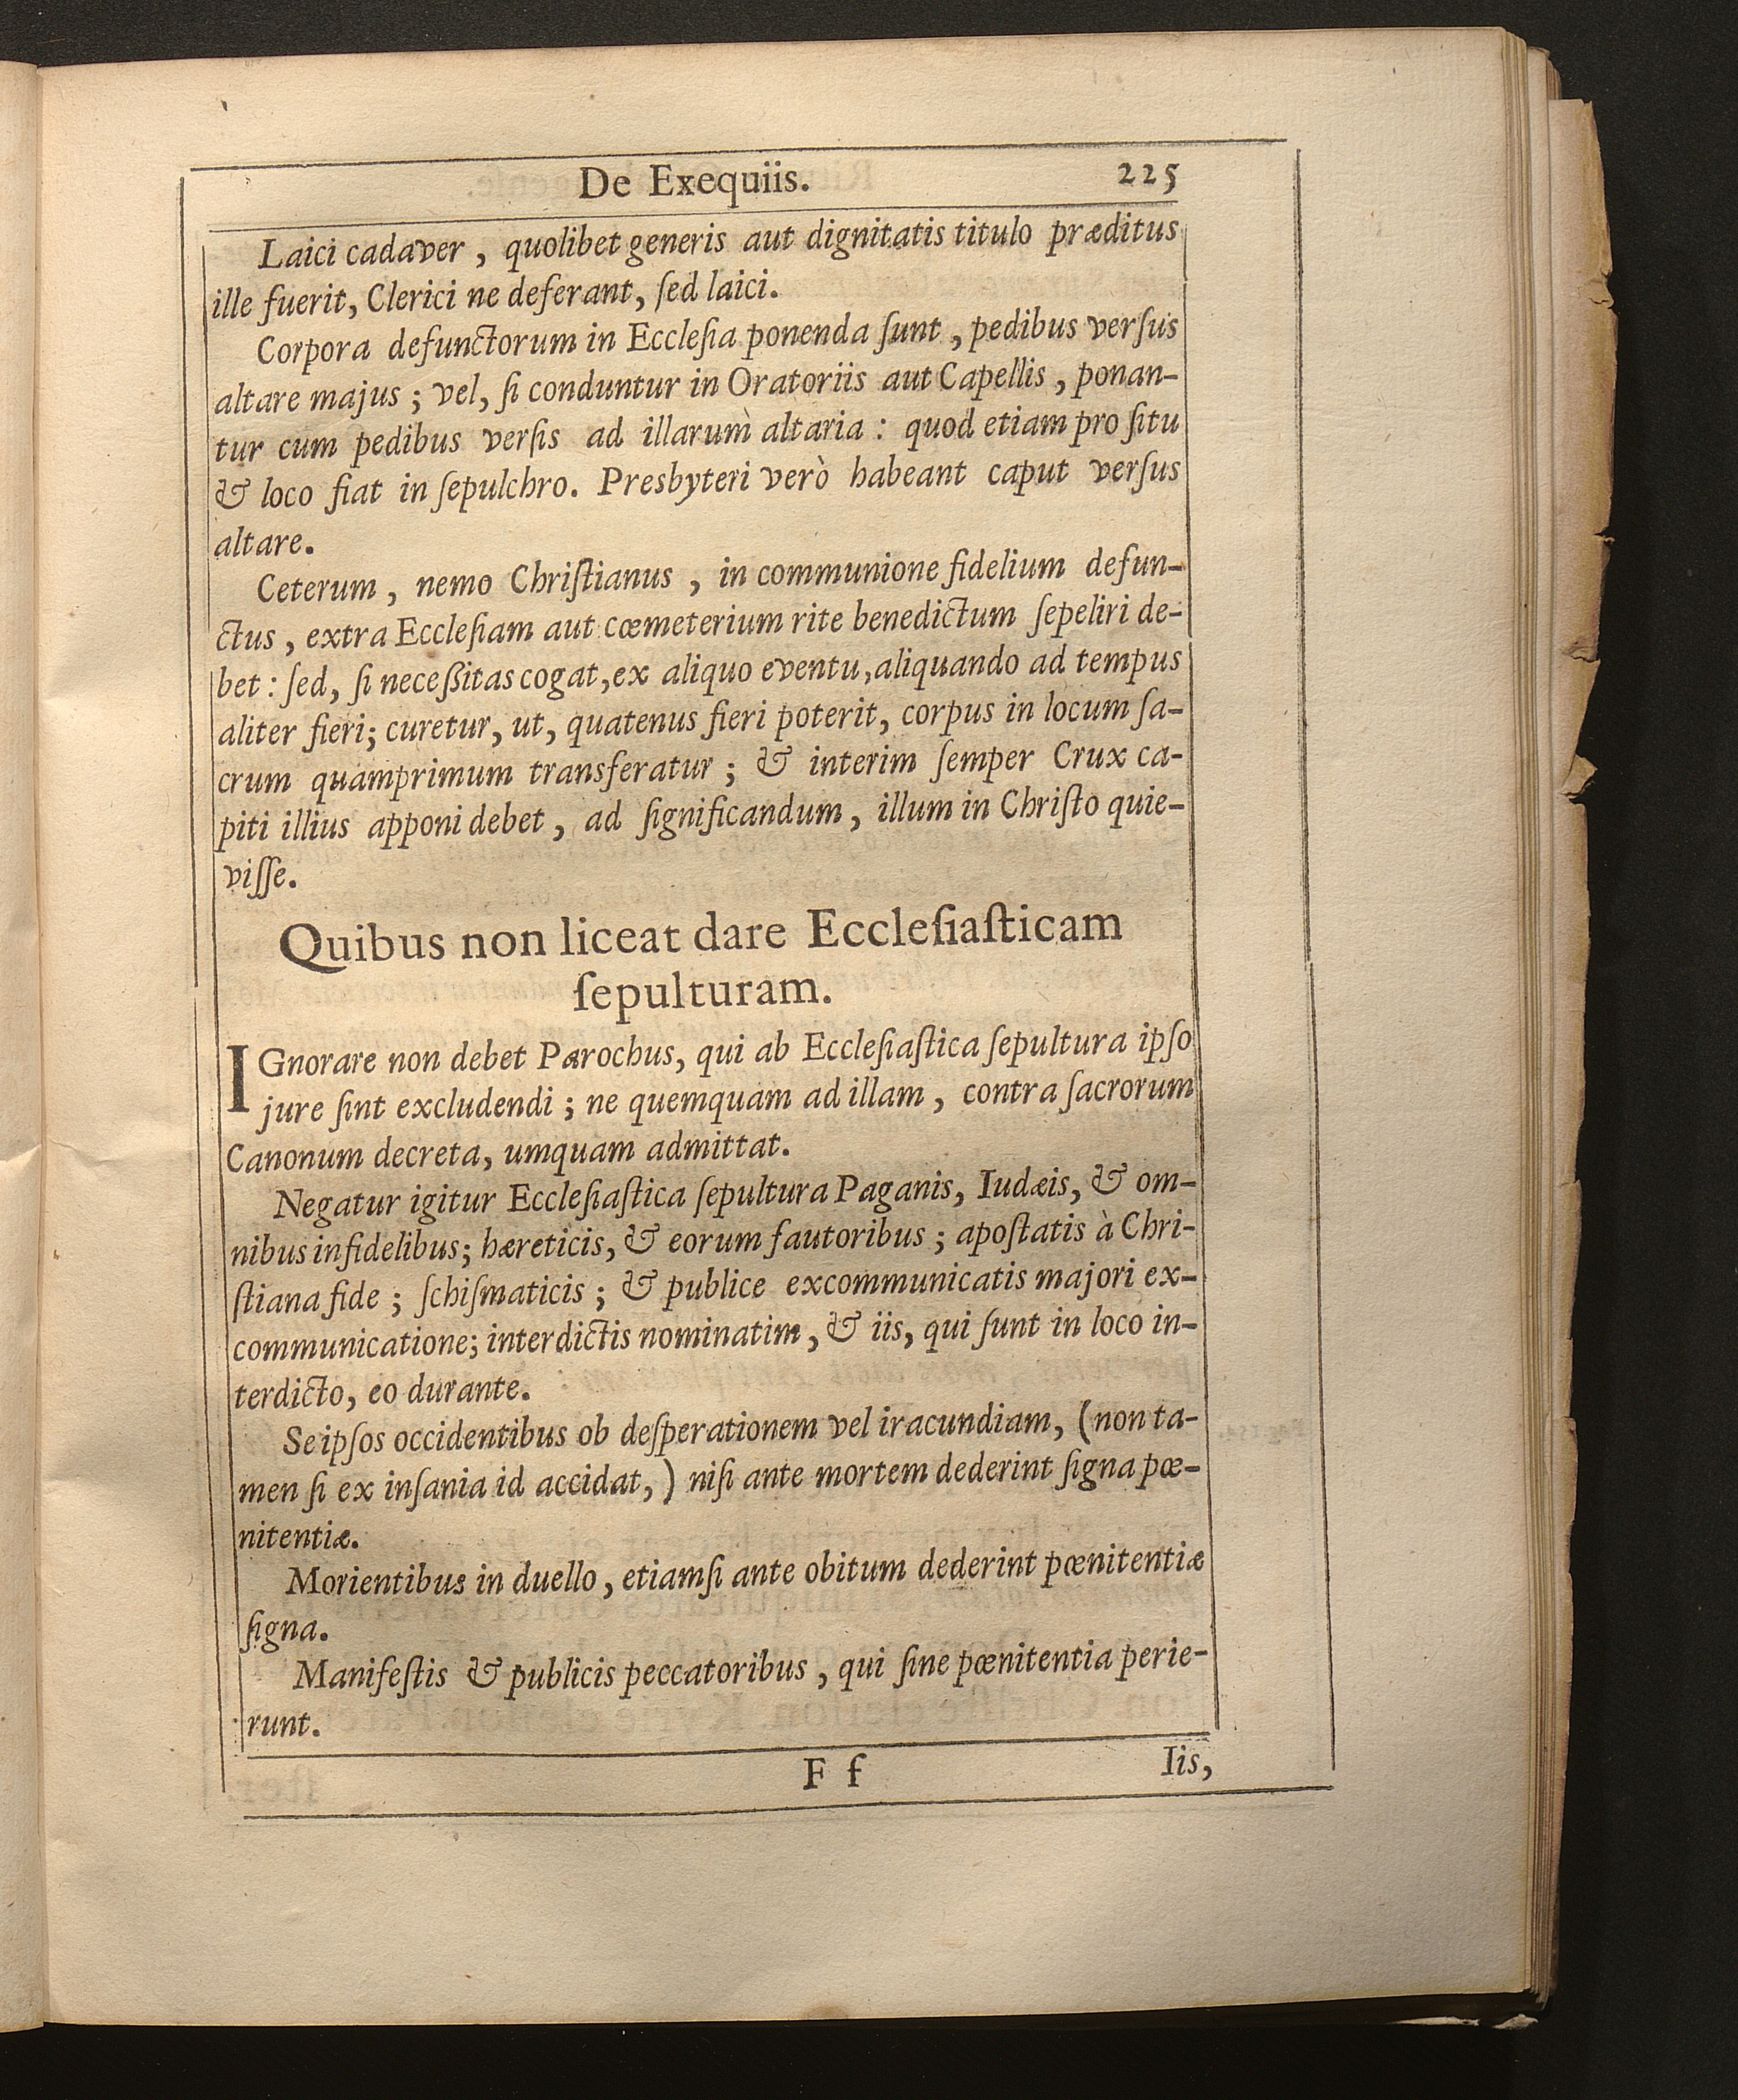 De Exequiis. 225
Laici cadaver, quolibet generis aut dignitatis titulo præditus
ille fuerit, Clerici ne deferant, ſed laici.
Corpora defunctorum in Eccleſia ponenda ſunt, pedibus verſus
altare majus; vel, ſi conduntur in Oratoriis aut Capellis, ponan-
tur cum pedibus verſis ad illarum altaria: quod etiam pro ſitu
& loco fiat in ſepulchro. Presbyteri verò habeant caput verſus
altare.
Ceterum, nemo Chriſtianus, in communione fidelium defun-
ctus, extra Eccleſiam aut cœmeterium rite benedictum ſepeliri de-
bet: ſed, ſi neceßitas cogat, ex aliquo eventu, aliquando ad tempus
aliter fieri; curetur, ut, quatenus fieri poterit, corpus in locum ſa-
crum quamprimum transferatur; & interim ſemper Crux ca-
piti illius apponi debet, ad ſignificandum, illum in Chriſto quie-
viſſe.
Quibus non liceat dare Eccleſiaſticam
ſepulturam.
IGnorare non debet Parochus, qui ab Eccleſiaſtica ſepultura ipſo
jure ſint excludendi; ne quemquam ad illam, contra ſacrorum
Canonum decreta, umquam admittat.
Negatur igitur Eccleſiaſtica ſepultura Paganis, Iudæis, & om-
nibus infidelibus; hæreticis, & eorum fautoribus; apoſtatis à Chri-
ſtiana fide; ſchiſmaticis; & publice excommunicatis majori ex-
communicatione; interdictis nominatim, & iis, qui ſunt in loco in-
terdicto, eo durante.
Seipſos occidentibus ob deſperationem vel iracundiam, (non ta-
men ſi ex inſania id accidat,) niſi ante mortem dederint ſigna pœ-
nitentiæ.
Morientibus in duello, etiamſi ante obitum dederint pœnitentiæ
ſigna.
Manifeſtis & publicis peccatoribus, qui ſine pœnitentia perie-
runt.
F f Iis,